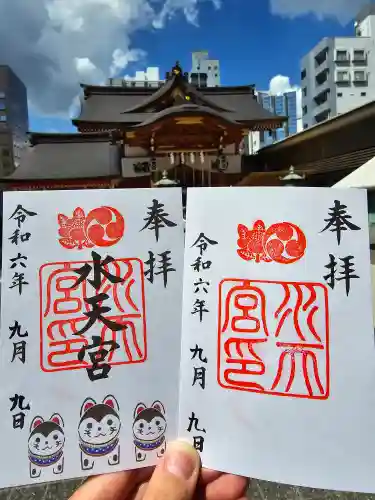 奉拝
水天宮
水天宮印
令和六年 九月 九日
奉拝
水天宮印
令和六年 九月 九日